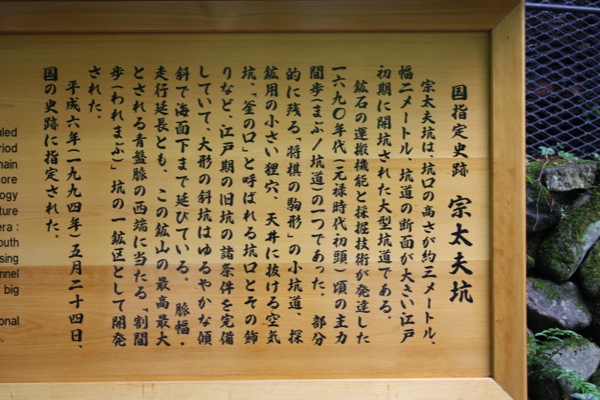 国指定史跡 宗太夫坑
宗太夫坑は、坑口の高さが約三メートル、
幅二メートル、坑道の断面が大きい江戸
初期に開坑された大型坑道である。
鉱石の運搬機能と採掘技術が発達した
一六九〇年代(元禄時代初頭)頃の主力
間歩(まぶ/坑道)の一つであった。 部分
的に残る、「将棋の駒形」の小坑道、探
鉱用の小さい狸穴、天井に抜ける空気
坑、「釜の口」と呼ばれる坑口とその飾
りなど、江戸期の旧坑の諸条件を完備
していて、大形の斜坑はゆるやかな傾
斜で海面下まで延びている。 脈幅・
走行延長とも、この鉱山の最高最大
とされる青盤脈の西端に当たる、「割間
歩(われまぶ)」坑の一鉱区として開発
された。
平成六年(一九九四年)五月二十四日、
国の史跡に指定された。
aled
riod
nain
ore
ogy
ture
era :
outh
sing
nnel
big
onal